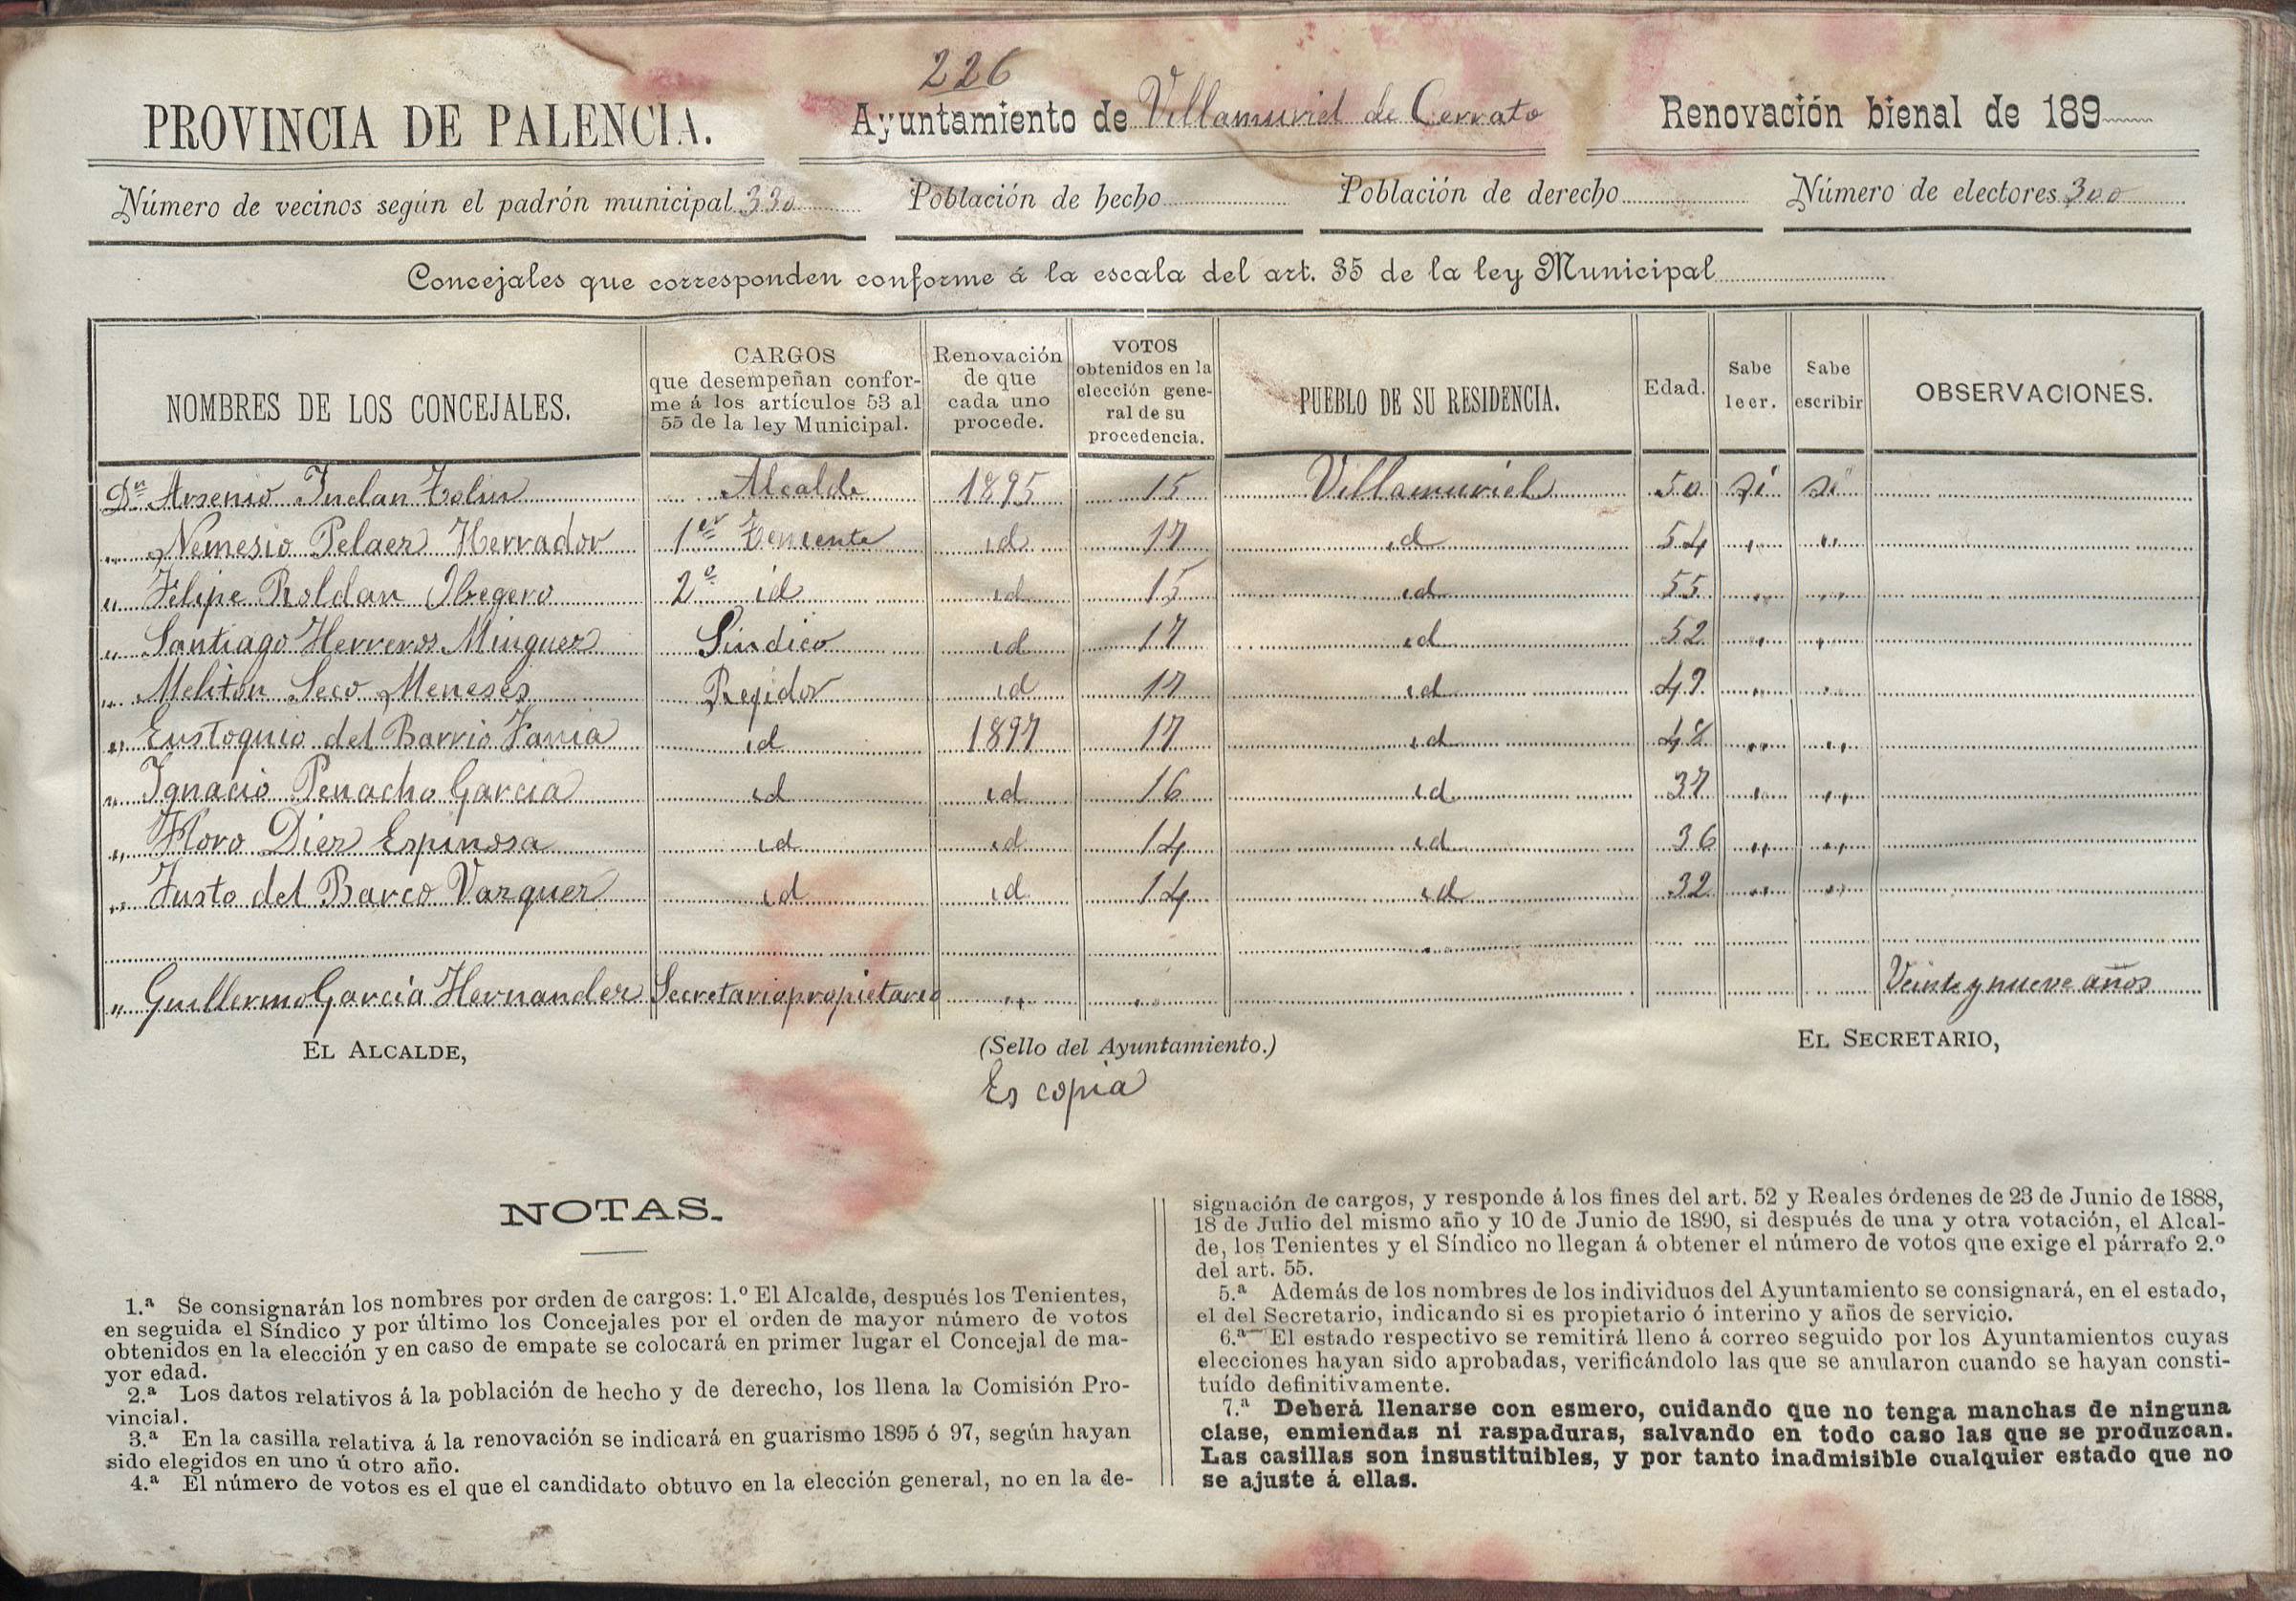 226
PROVINCIA DE PALENCIA. Ayuntamiento de Villamuriel de Cerrato Renovación bienal de 189
Número de vecinos según el padrón municipal 330 Población de hecho Población de derecho Número de electores 300
Concejales que corresponden conforme á la escala del art. 35 de la ley Municipal
NOMBRES DE LOS CONCEJALES. CARGOS que desempeñan confor- me á los artículos 53 al 55 de la ley Municipal. Renovación de que cada uno procede. VOTOS obtenidos en la elección gene- ral de su procedencia. PUEBLO DE SU RESIDENCIA. Edad. Sabe leer. Sabe escribir OBSERVACIONES.
Dn Arsenio Inclan Alcalde 1895 15 Villamuriel 50 si si
" Nemesio Pelaez Herrador 1er Teniente id 17 id 54 " "
" Felipe Roldan 2º id id 15 id 55 " "
" Santiago Herreros Minguez Sindico id 17 id 52 " "
" Meliton Seco Meneses Regidor id 17 id 49 " "
" Eustoquio del Barrio id 1897 17 id 48 " "
" Ignacio Penacho Garcia id id 16 id 37 " "
" Floro Diez Espinosa id id 14 id 36 " "
" Justo del Barco Vazquez id id 14 id 32 " "
" Guillermo Garcia Hernandez Secretario propietario " " Veinte y nueve años
EL ALCALDE, (Sello del Ayuntamiento.) EL SECRETARIO,
Es copia
NOTAS.
1.ª Se consignarán los nombres por orden de cargos: 1.º El Alcalde, después los Tenientes,
en seguida el Síndico y por último los Concejales por el orden de mayor número de votos
obtenidos en la elección y en caso de empate se colocará en primer lugar el Concejal de ma-
yor edad.
2.ª Los datos relativos á la población de hecho y de derecho, los llena la Comisión Pro-
vincial.
3.ª En la casilla relativa á la renovación se indicará en guarismo 1895 ó 97, según hayan
sido elegidos en uno ú otro año.
4.ª El número de votos es el que el candidato obtuvo en la elección general, no en la de-
signación de cargos, y responde á los fines del art. 52 y Reales órdenes de 23 de Junio de 1888,
18 de Julio del mismo año y 10 de Junio de 1890, si después de una y otra votación, el Alcal-
de, los Tenientes y el Síndico no llegan á obtener el número de votos que exige el párrafo 2.º
del art. 55.
5.ª Además de los nombres de los individuos del Ayuntamiento se consignará, en el estado,
el del Secretario, indicando si es propietario ó interino y años de servicio.
6.ª El estado respectivo se remitirá lleno á correo seguido por los Ayuntamientos cuyas
elecciones hayan sido aprobadas, verificándolo las que se anularon cuando se hayan consti-
tuído definitivamente.
7.ª Deberá llenarse con esmero, cuidando que no tenga manchas de ninguna
clase, enmiendas ni raspaduras, salvando en todo caso las que se produzcan.
Las casillas son insustituibles, y por tanto inadmisible cualquier estado que no
se ajuste á ellas.